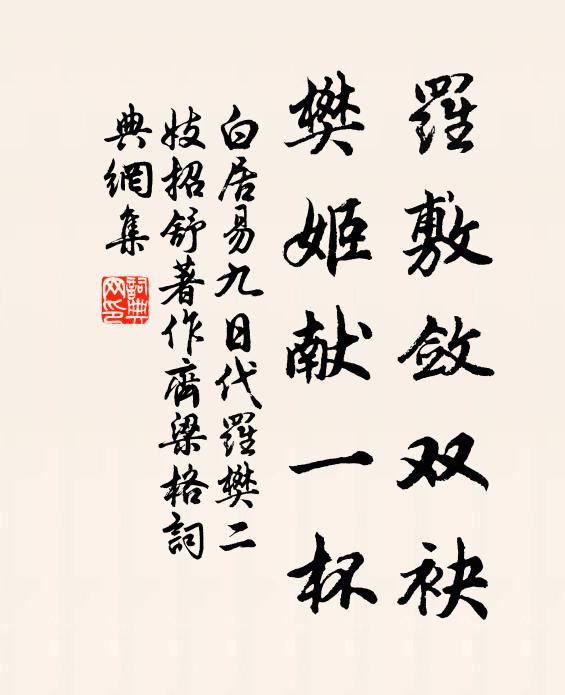 羅敷斂双袂
樊姬献一杯
白居易九日代羅樊二
妓招舒著作齊梁格詞
典網集
詞典网印